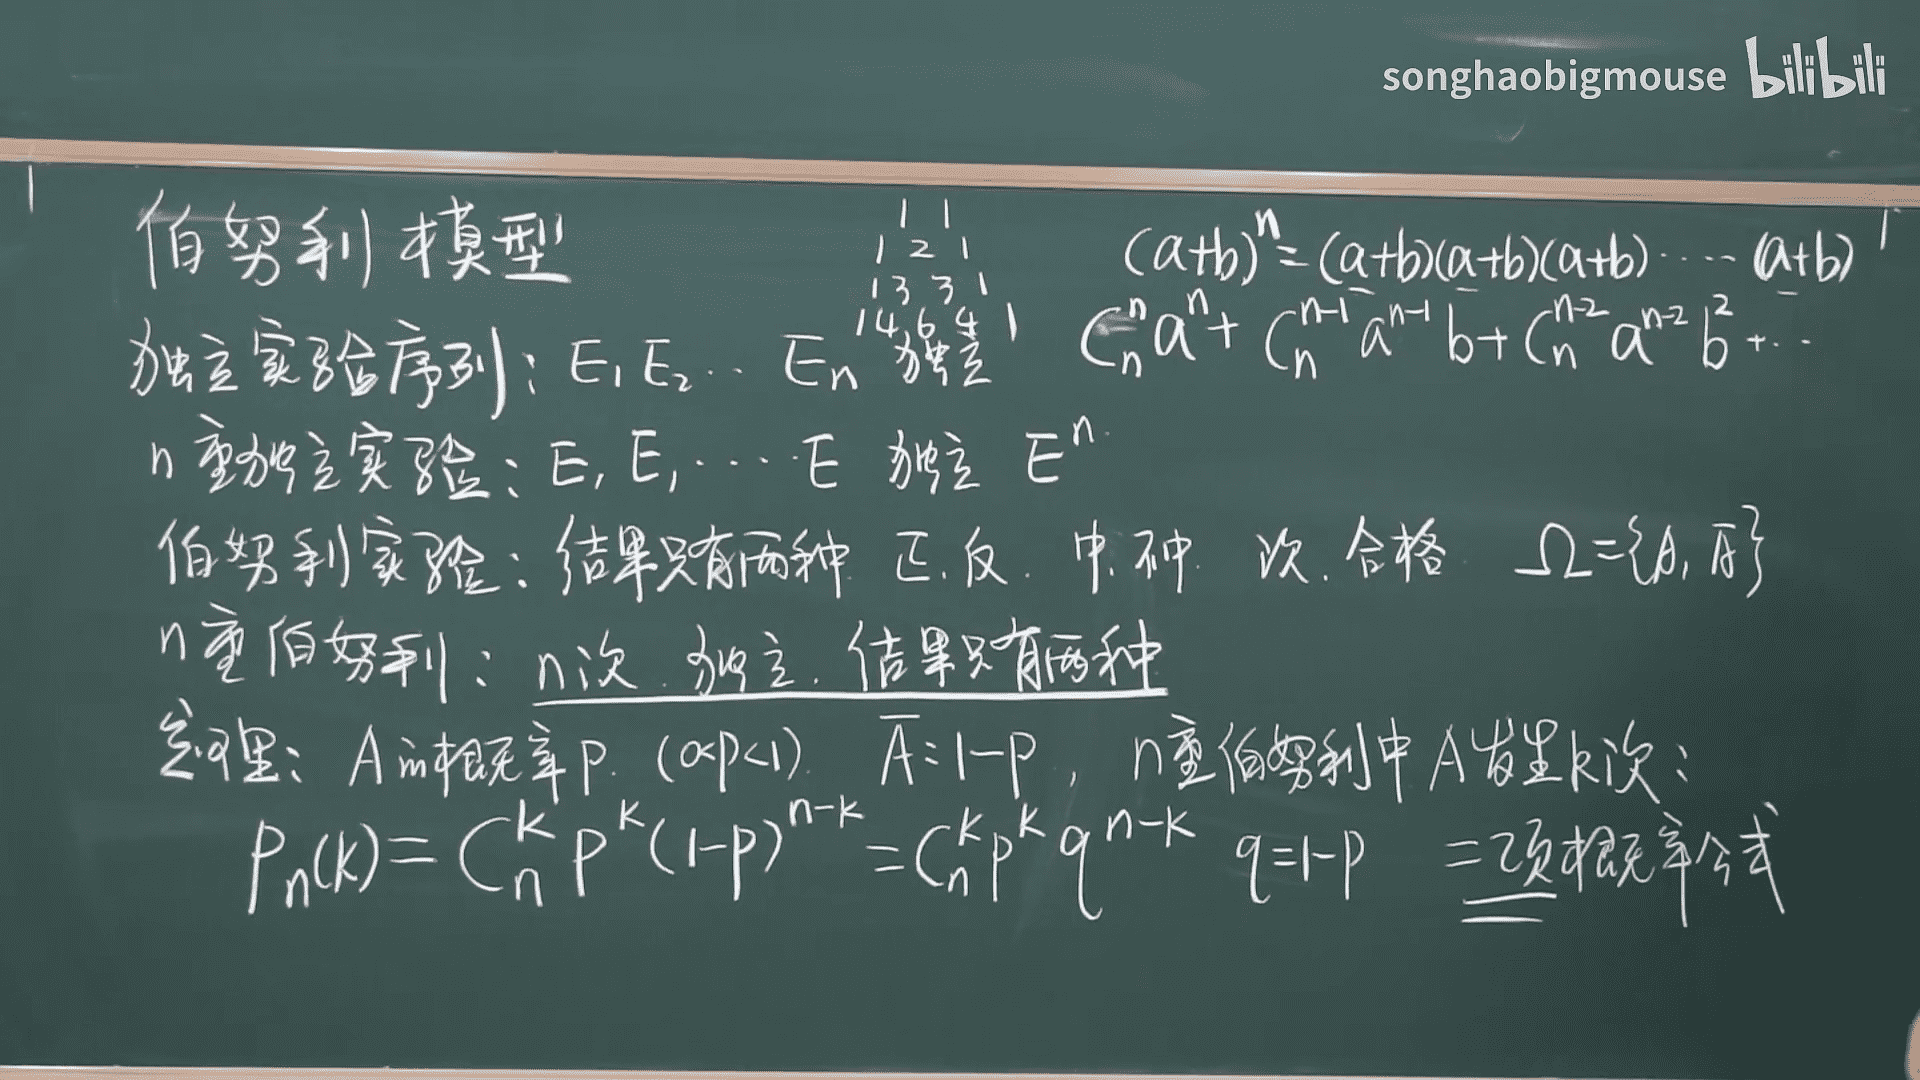 songhaobigmouse bilibili
伯努利模型
1 1
1 2 1
1 3 3 1
1 4 6 4 1
(a+b)^n=(a+b)(a+b)(a+b)·····(a+b)
C_n^n a^n + C_n^{n-1} a^{n-1} b + C_n^{n-2} a^{n-2} b^2 + ···
独立实验序列: E₁ E₂ ·· Eₙ 独立
n重独立实验: E, E, ····· E 独立 E^n.
伯努利实验: 结果只有两种 正.反. 中.不中. 次.合格. Ω={A, Ā}
n重伯努利: n次.独立.结果只有两种
定理: A的概率p. (0<p<1). Ā=1-p, n重伯努利中A发生k次:
P_n(k)=C_n^k p^k (1-p)^{n-k} = C_n^k p^k q^{n-k} q=1-p 二项概率公式